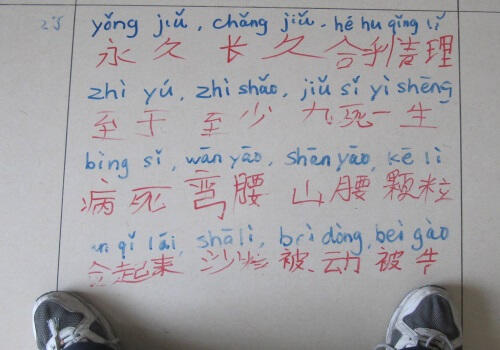 yǒng jiǔ, cháng jiǔ, hé hu qíng lǐ
永久 长久 合乎情理
zhì yú, zhì shǎo, jiǔ sǐ yì shēng
至于 至少 九死一生
bìng sǐ, wān yāo, shān yāo, kē lì
病死 弯腰 山腰 颗粒
qǐ lái, shālì, bèi dòng, bèi gào
起来 沙粒 被动 被